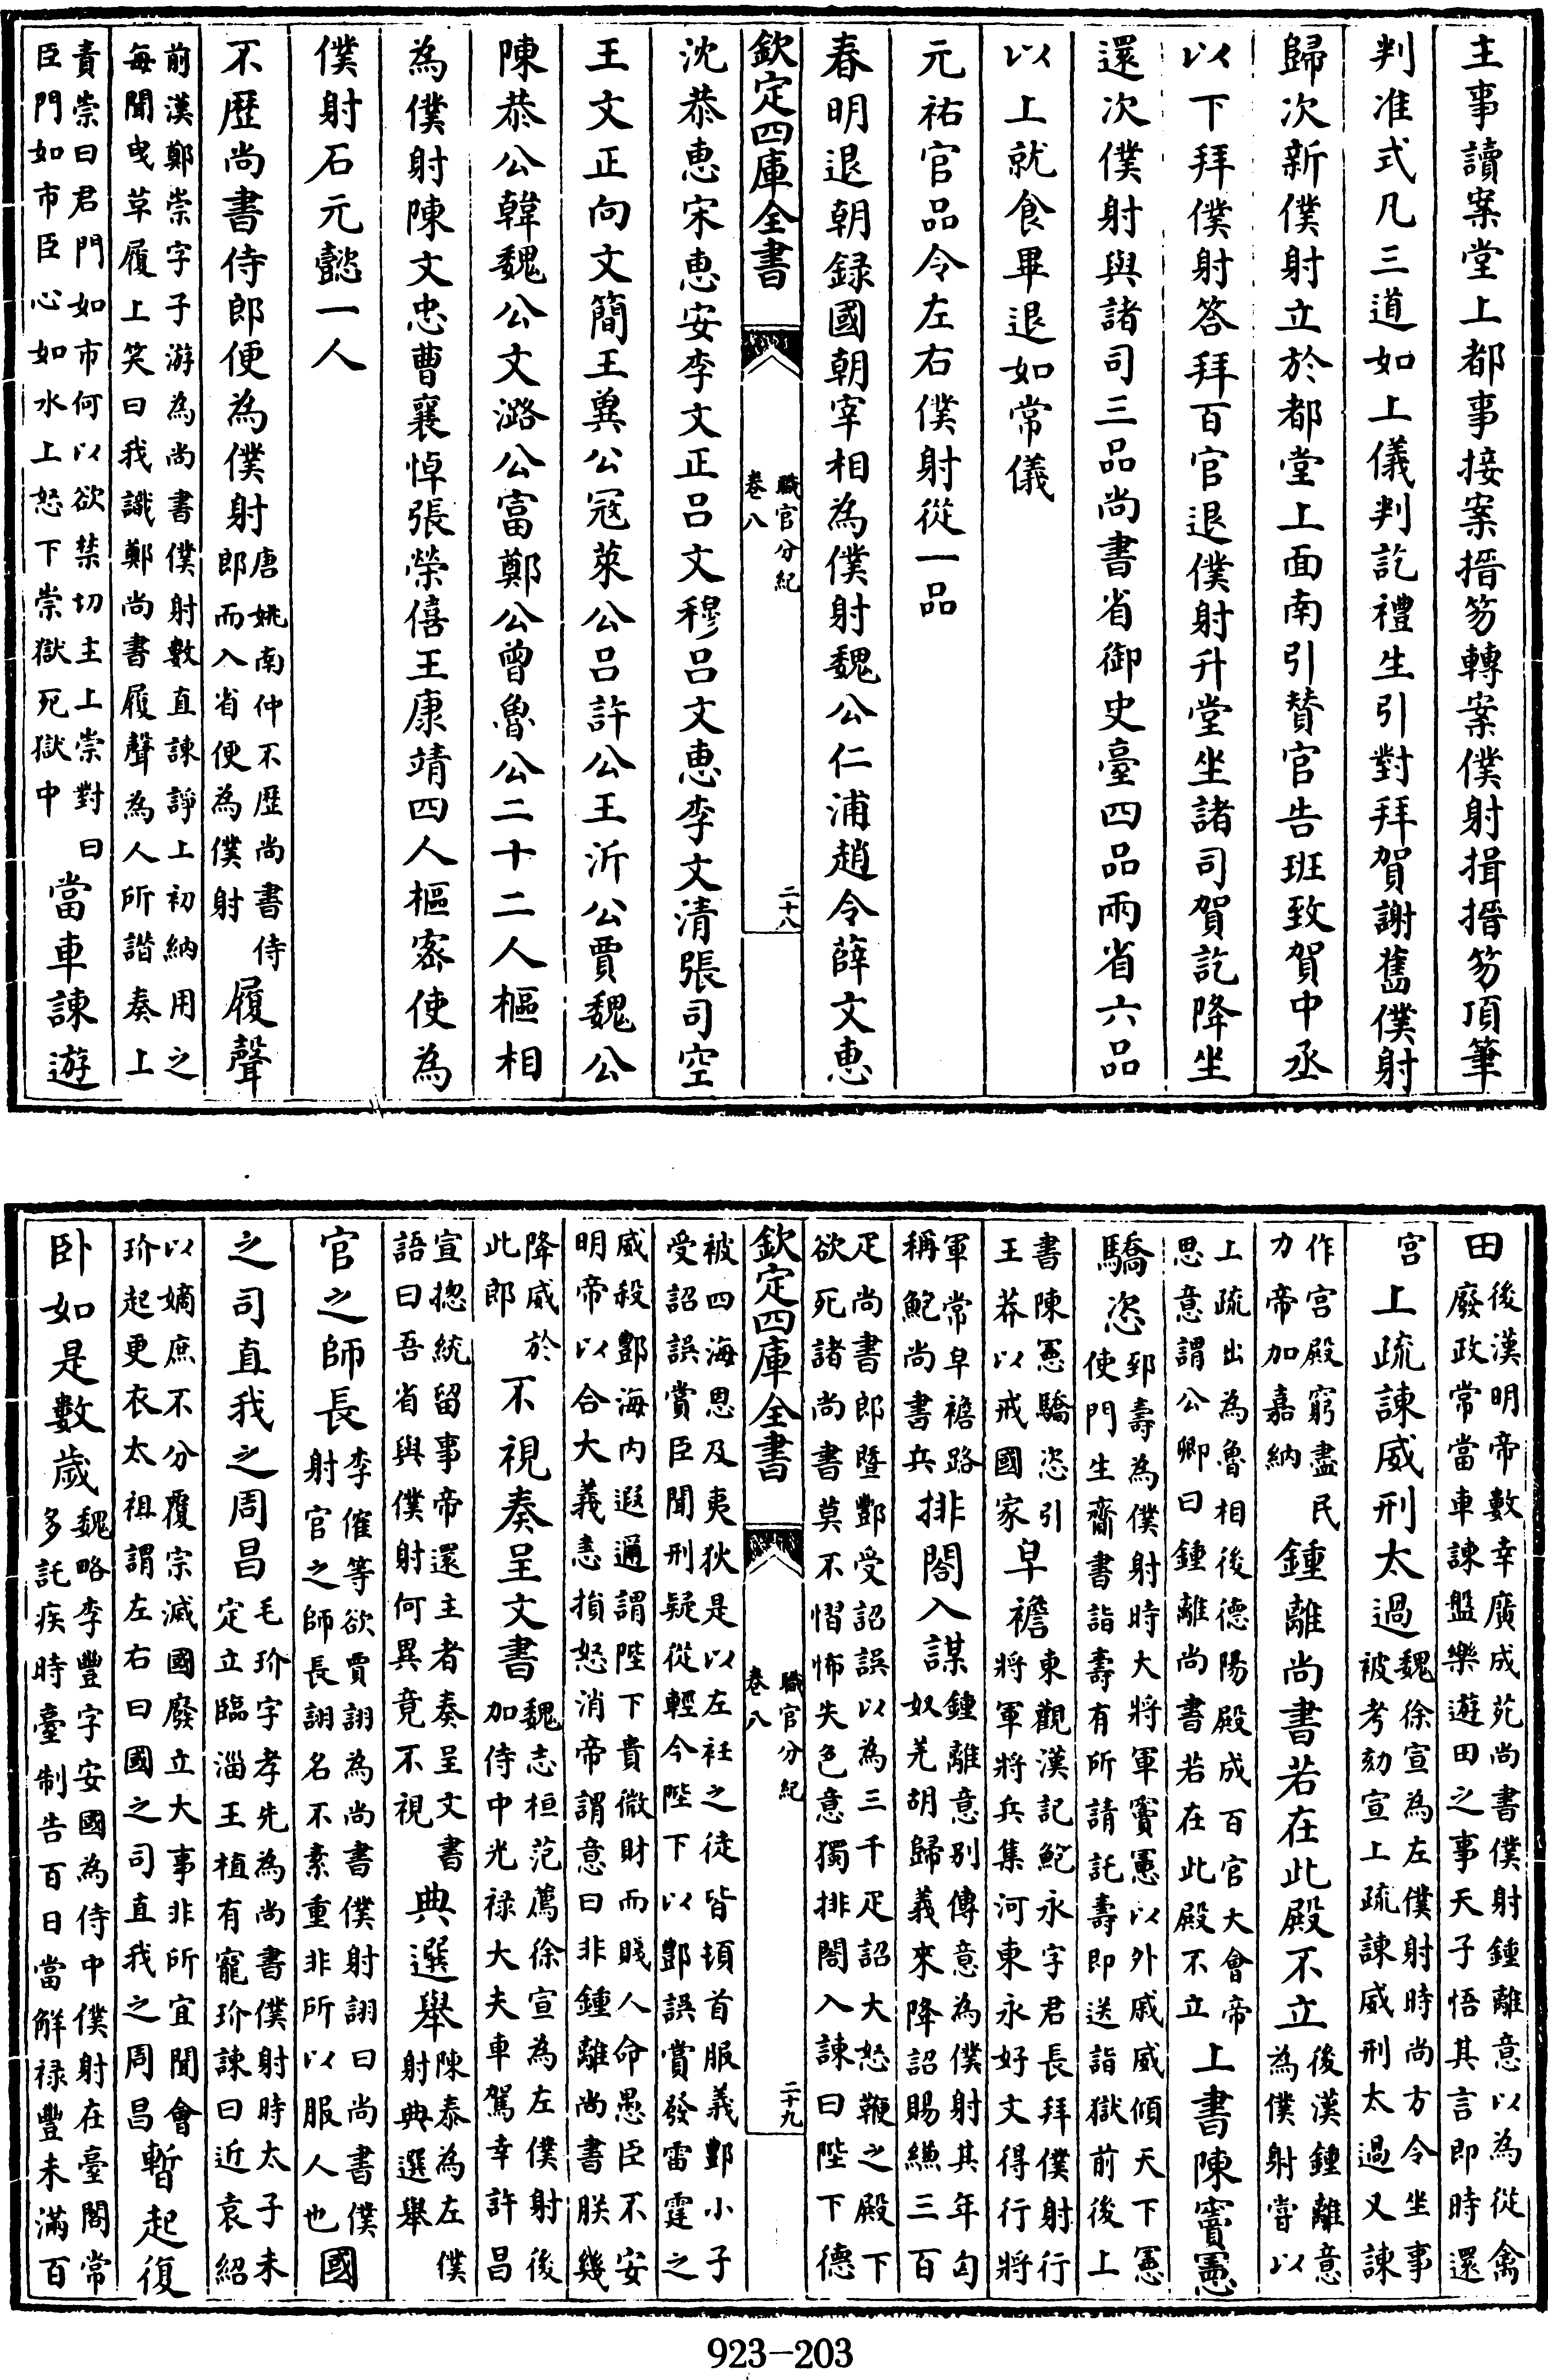 主事讀案堂上都事接案搢笏轉案僕射揖搢笏頂筆
判准式凡三道如上儀判訖禮生引對拜賀謝舊僕射
歸次新僕射立於都堂上面南引賛官告班致賀中丞
以下拜僕射答拜百官退僕射升堂坐諸司賀訖降坐
還次僕射與諸司三品尚書省御史臺四品兩省六品
以上就食畢退如常儀
元祐官品令左右僕射從一品
春明退朝録國朝宰相為僕射魏公仁浦趙令薛文惠
欽定四庫全書
職官分紀
卷八
二十八
沈恭惠宋惠安李文正吕文穆吕文惠李文清張司空
王文正向文簡王冀公冦萊公吕許公王沂公賈魏公
陳恭公韓魏公文潞公富鄭公曾魯公二十二人樞相
為僕射陳文忠曹襄悼張榮僖王康靖四人樞宻使為
僕射石元懿一人
不歴尚書侍郎便為僕射
唐姚南仲不歴尚書侍
郎而入省便為僕射
履聲
前漢鄭崇字子游為尚書僕射數直諫諍上初納用之
每聞曵草履上笑曰我識鄭尚書履聲為人所譖奏上
責崇曰君門如市何以欲禁切主上崇對曰
臣門如市臣心如水上怒下崇獄死獄中
當車諫遊
田
後漢明帝數幸廣成苑尚書僕射鍾離意以為從禽
廢政常當車諫盤樂遊田之事天子悟其言即時還
宫
上疏諫威刑太過
魏徐宣為左僕射時尚方令坐事
被考劾宣上疏諫威刑太過又諫
作宫殿窮盡民
力帝加嘉納
鍾離尚書若在此殿不立
後漢鍾離意
為僕射嘗以
上疏出為魯相後德陽殿成百官大會帝
思意謂公卿曰鍾離尚書若在此殿不立
上書陳竇憲
驕恣
郅壽為僕射時大將軍竇憲以外戚威傾天下憲
使門生齎書詣壽有所請託壽即送詣獄前後上
書陳憲驕恣引
王莽以戒國家
皁襜
東觀漢記鮑永字君長拜僕射行
將軍將兵集河東永好文得行將
軍常皁襜路
稱鮑尚書兵
排閤入謀
鍾離意别傳意為僕射其年匈
奴羌胡歸義來降詔賜縑三百
疋尚書郎暨酆受詔誤以為三千疋詔大怒鞭之殿下
欲死諸尚書莫不慴怖失色意獨排閤入諫曰陛下德
欽定四庫全書
職官分紀
卷八
二十九
被四海恩及夷狄是以左衽之徒皆頓首服義酆小子
受詔誤賞臣聞刑疑從輕今陛下以酆誤賞發雷霆之
威殺酆海内遐邇謂陛下貴微財而賤人命愚臣不安
明帝以合大義恚損怒消帝謂意曰非鍾離尚書朕幾
降威於
此郎
不視奏呈文書
魏志桓范薦徐宣為左僕射後
加侍中光禄大夫車駕幸許昌
宣揔統留事帝還主者奏呈文書
語曰吾省與僕射何異竟不視
典選舉
陳泰為左僕
射典選舉
官之師長
李傕等欲賈詡為尚書僕射詡曰尚書僕
射官之師長詡名不素重非所以服人也
國
之司直我之周昌
毛玠字孝先為尚書僕射時太子未
定立臨淄王植有寵玠諫曰近袁紹
以嫡庶不分覆宗滅國廢立大事非所宜聞會
玠起更衣太祖謂左右曰國之司直我之周昌
暫起復
卧如是數歲
魏略李豐字安國為侍中僕射在臺閣常
多託疾時臺制告百日當解禄豐未滿百
923-203